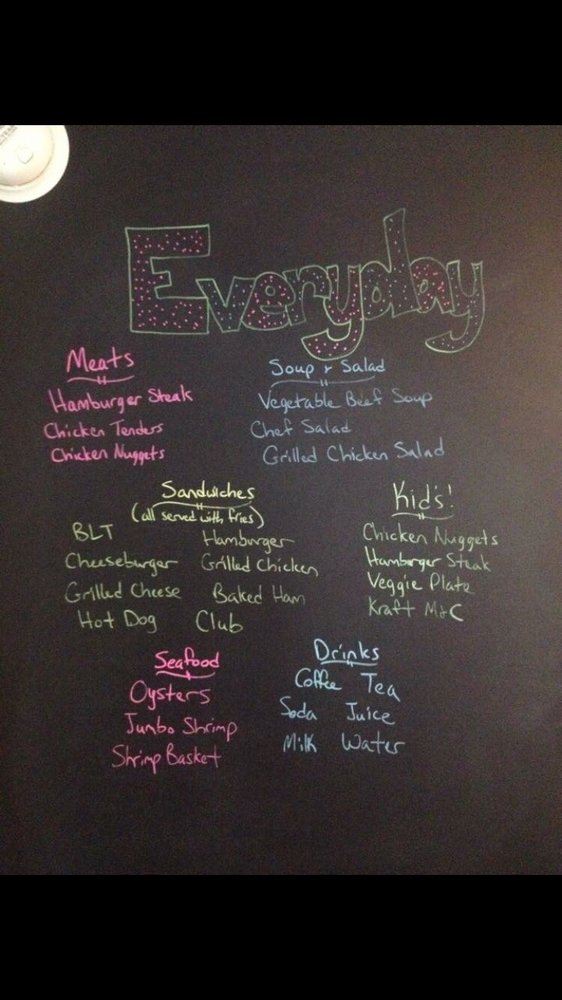 Everyday
Meats
Hamburger Steak
Chicken Tenders
Chicken Nuggets
Soup & Salad
Vegetable Beef Soup
Chef Salad
Grilled Chicken Salad
Sandwiches
(all served with fries)
BLT Hamburger
Cheeseburger Grilled Chicken
Grilled Cheese Baked Ham
Hot Dog Club
Kid's!
Chicken Nuggets
Hamburger Steak
Veggie Plate
Kraft M&C
Seafood
Oysters
Jumbo Shrimp
Shrimp Basket
Drinks
Coffee Tea
Soda Juice
Milk Water